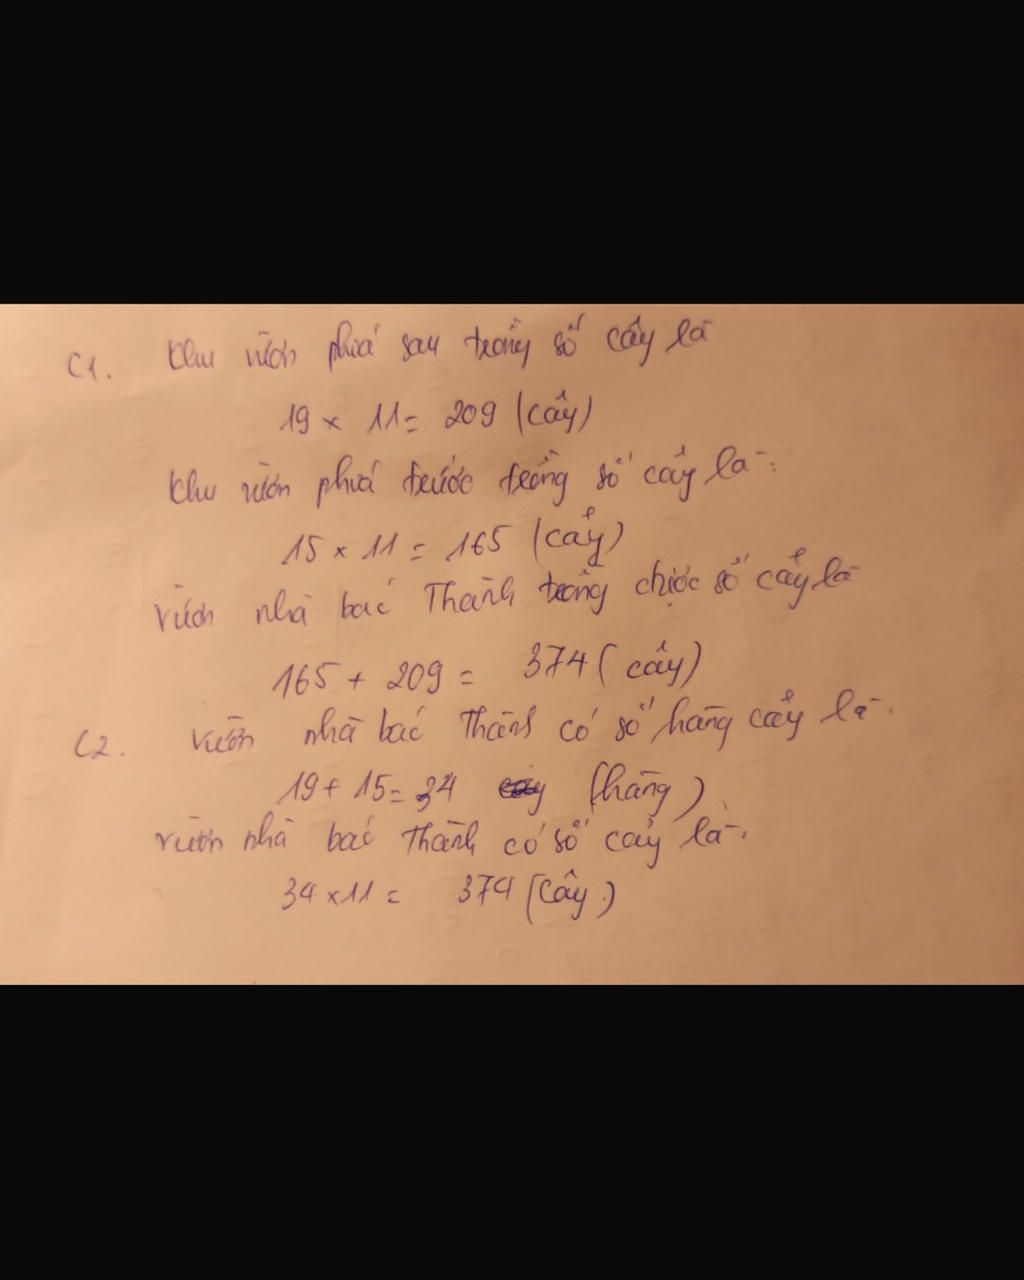 C1. Khu vườn phiá sau trồng số cây là
19 x 11 = 209 (cây)
Khu vườn phiá trước trồng số cây là:
15 x 11 = 165 (cây)
Vườn nhà bác Thành trồng được số cây là
165 + 209 = 374 (cây)
C2. Vườn nhà bác Thành có số hàng cây là:
19 + 15 = 34 (hàng)
vườn nhà bác Thành có số cây là:
34 x 11 = 374 (cây)